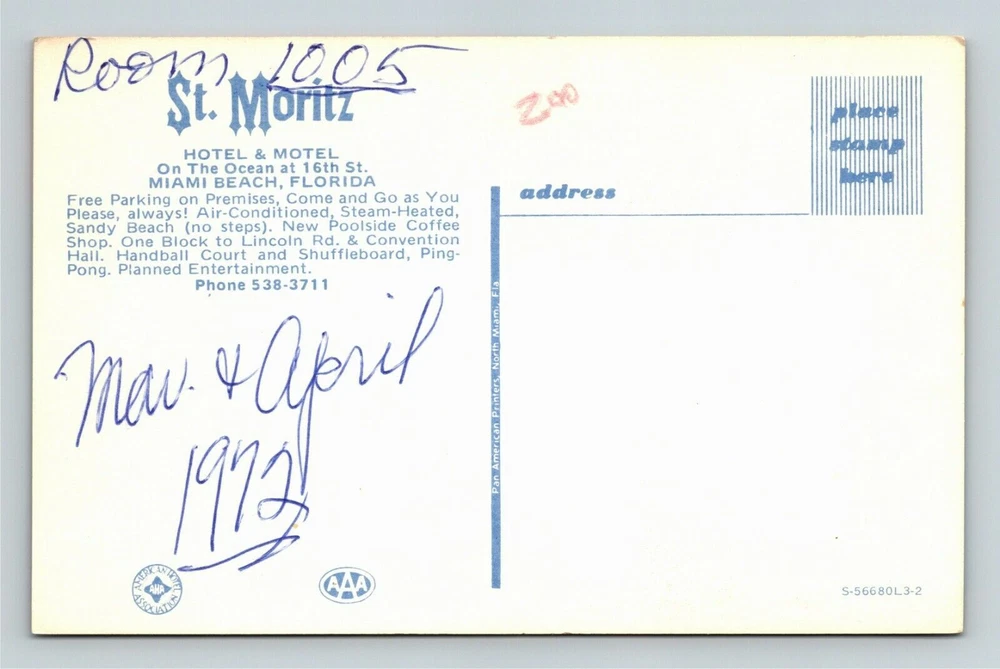 Room 1005
St. Moritz
HOTEL & MOTEL
On The Ocean at 16th St.
MIAMI BEACH, FLORIDA
Free Parking on Premises, Come and Go as You
Please, always! Air-Conditioned, Steam-Heated,
Sandy Beach (no steps). New Poolside Coffee
Shop. One Block to Lincoln Rd. & Convention
Hall. Handball Court and Shuffleboard, Ping-
Pong. Planned Entertainment.
Phone 538-3711
Mar. & April
1972
AMERICAN HOTEL
AHA
ASSOCIATION
AAA
Pan American Printers, North Miami, Fla
200
place
stamp
here
address
S-56680L3-2